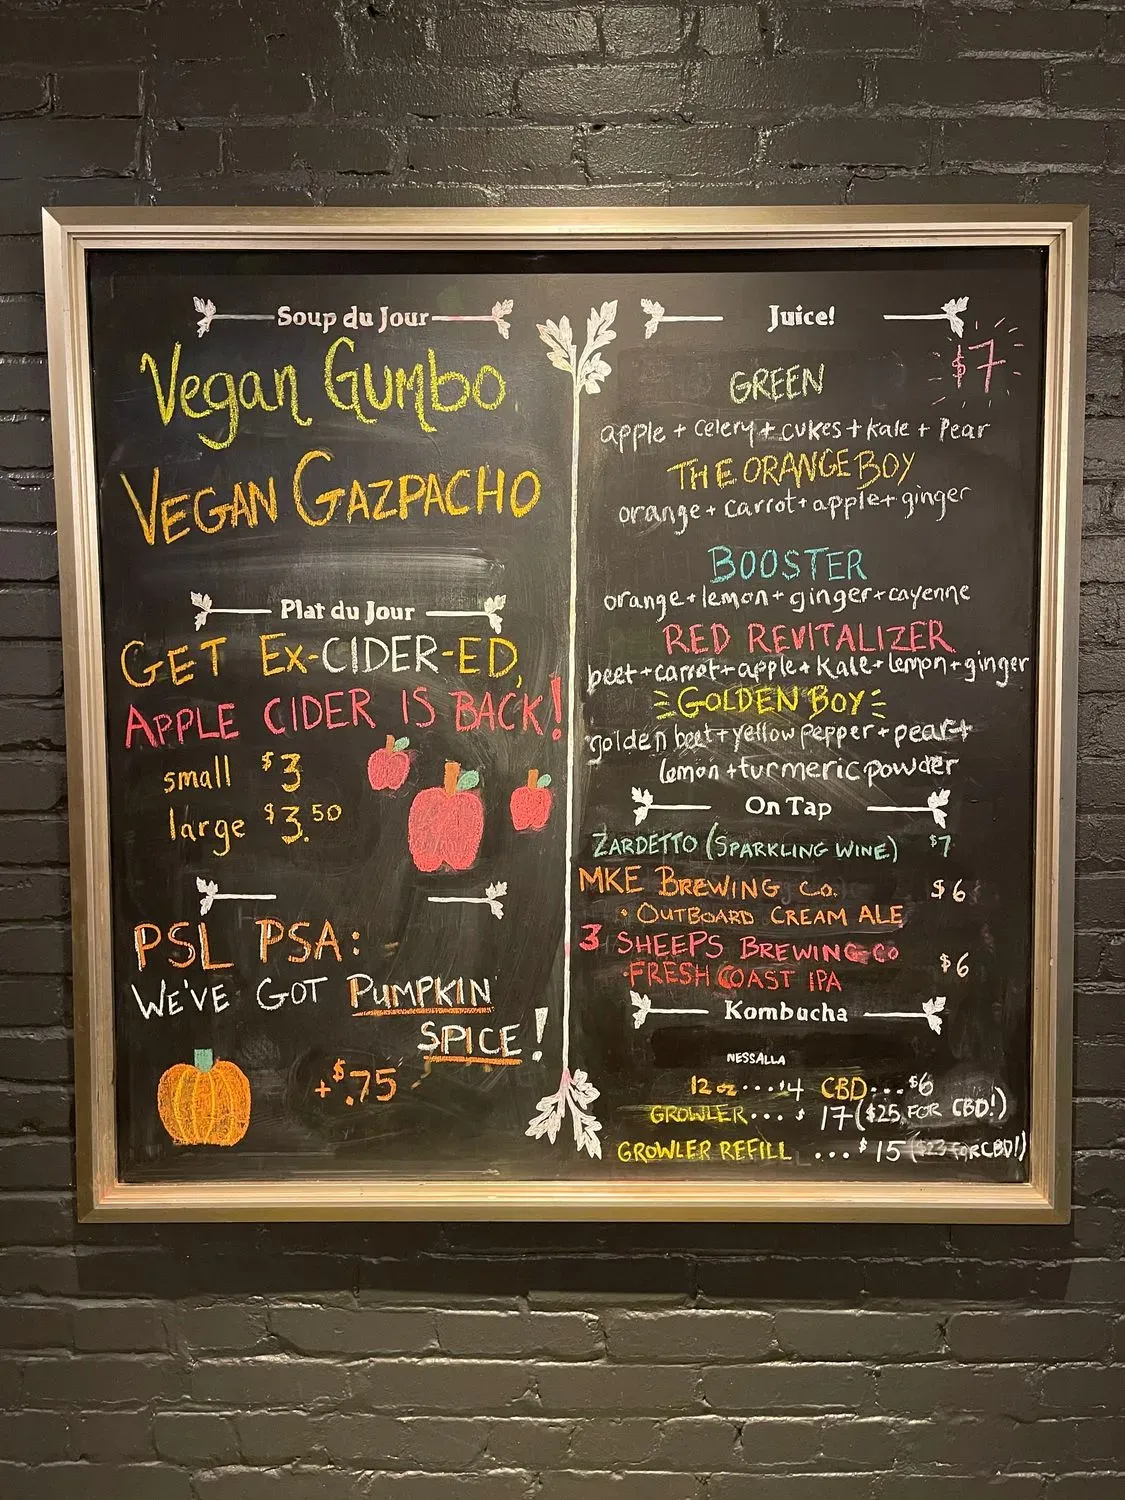 Soup du Jour
Vegan Gumbo
VEGAN GAZPACHO
Plat du Jour
GET EX-CIDER-ED,
APPLE CIDER IS BACK!
small $3
large $3.50
PSL PSA:
WE'VE GOT PUMPKIN
SPICE!
+$.75
Juice!
$7
GREEN
apple + celery + cukes + kale + Pear
THE ORANGE BOY
orange + carrot + apple + ginger
BOOSTER
orange + lemon + ginger + cayenne
RED REVITALIZER
beet + carrot + apple + kale + lemon + ginger
GOLDEN BOY
golden beet + yellow pepper + pear +
lemon + turmeric powder
On Tap
ZARDETTO (SPARKLING WINE) $7
MKE BREWING Co. $6
· OUTBOARD CREAM ALE
3 SHEEPS BREWING CO
· FRESH COAST IPA $6
Kombucha
NESSALLA
12 oz .... $4 CBD... $6
GROWLER... $ 17 ($25 FOR CBD!)
GROWLER REFILL ... $15 ($23 FOR CBD!)